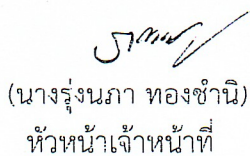 (นางรุ่งนภา ทองชำนิ)
หัวหน้าเจ้าหน้าที่